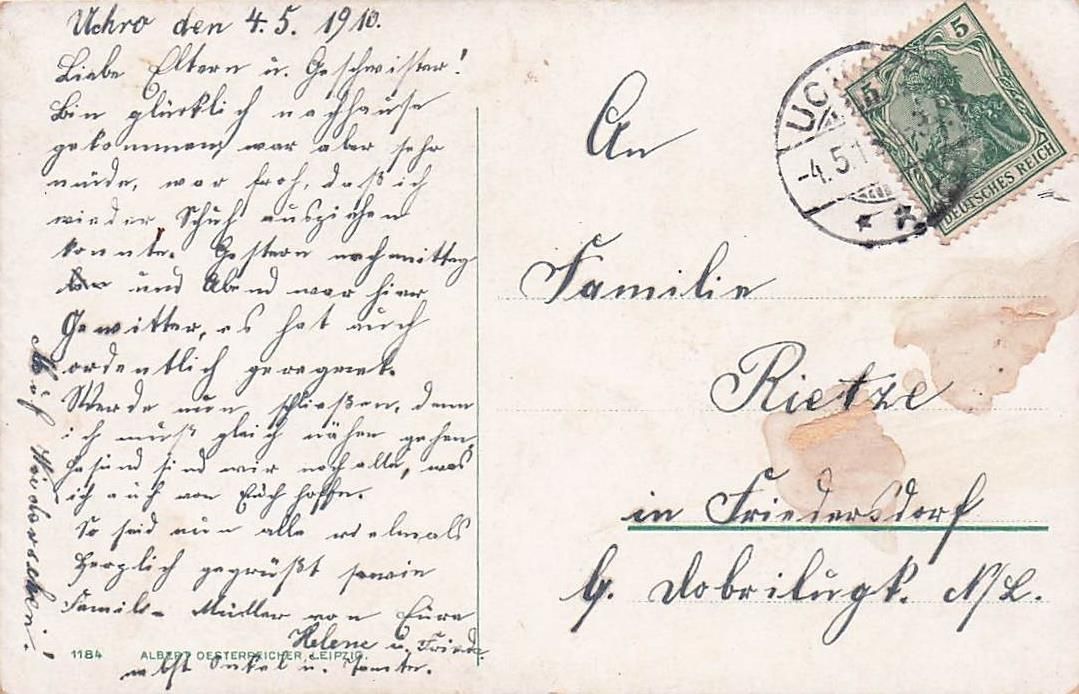 Uckro den 4.5. 1910.
Liebe Eltern u. Geschwister!
Bin glücklich nachhause
gekommen, war aber sehr
müde, war froh, daß ich
wieder Schuh ausziehen
konnte. Gestern nachmittag
und Abend war hier
Gewitter, es hat auch
ordentlich geregnet.
Werde nun schließen, denn
ich muß gleich nähen gehen,
Gesund sind wir noch alle, was
ich auch von Euch hoffe.
So seid nun alle vielmals
Herzlich gegrüßt sowie
Famil. Müller von Eure
Helene u. Frieda
nebst Onkel u. Tante.
Auf Wiedersehen!
1184 ALBERT OESTERREICHER, LEIPZIG.
An
Familie
Rietze
in Friedersdorf
b. Dobrilugk. N/L.
5
5
DEUTSCHES REICH
-4.5.1